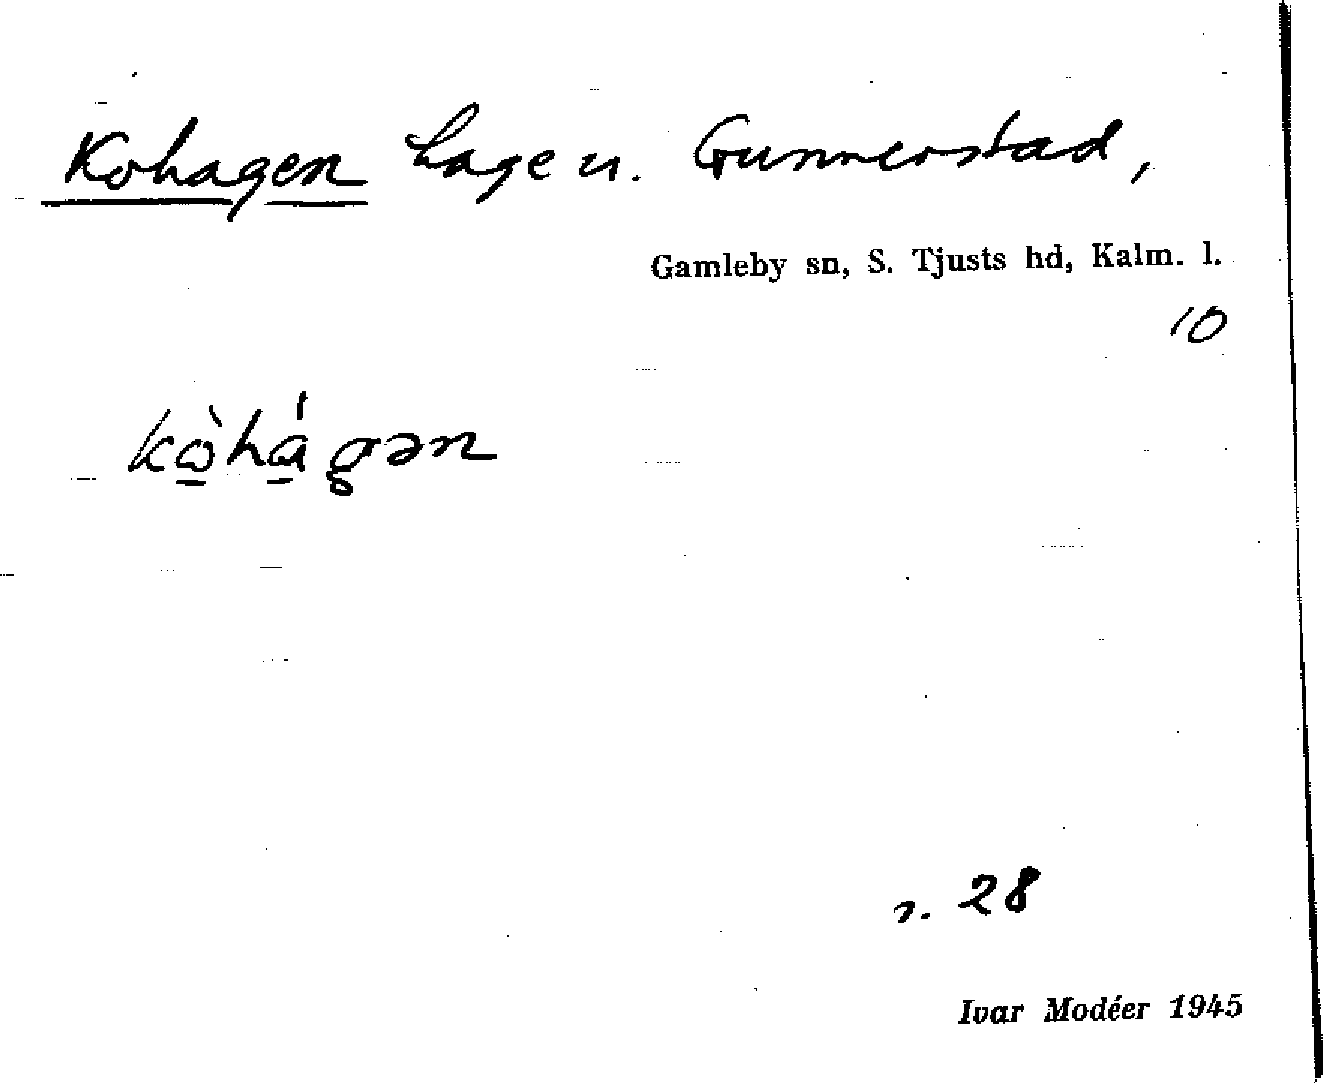 Kohagen hage u. Gunnerstad,
Gamleby sn, S. Tjusts hd, Kalm. l.
10
kὼ̲hɑ̲́gən
s. 28
Ivar Modéer 1945